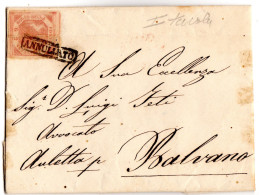 ANNULLATO
A Sua Eccellenza
Sig.r D. Luigi Jeti
Avvocato
Auletta p Balvano